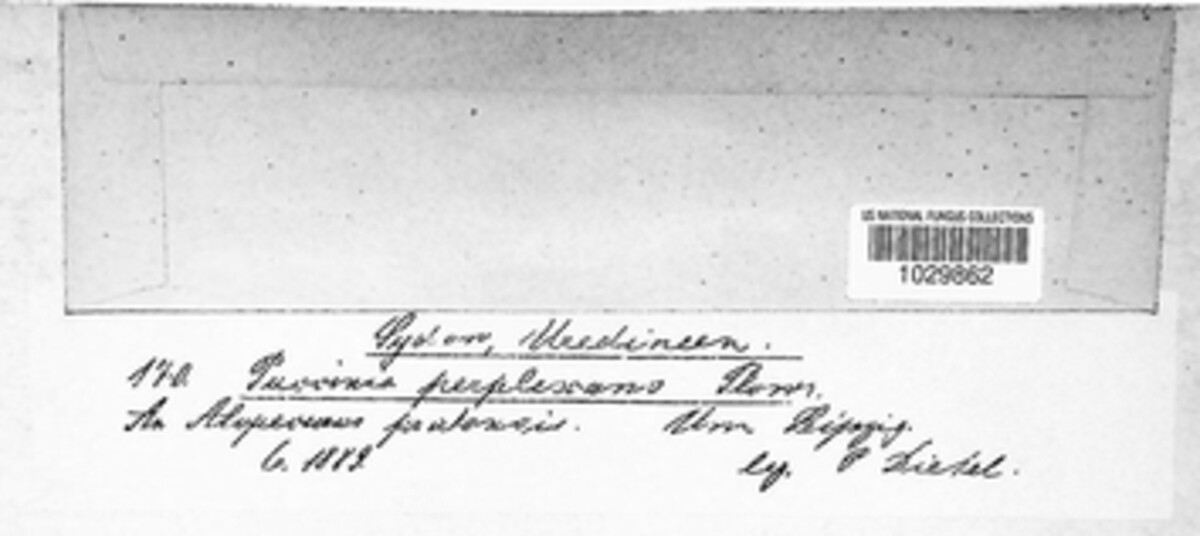 US NATIONAL FUNGUS COLLECTIONS
1029862
Sydow, Uredineen.
170. Puccinia perplexans Plowr.
An Alopecurus pratensis. Um Leipzig.
6. 1889 leg. P Dietel.